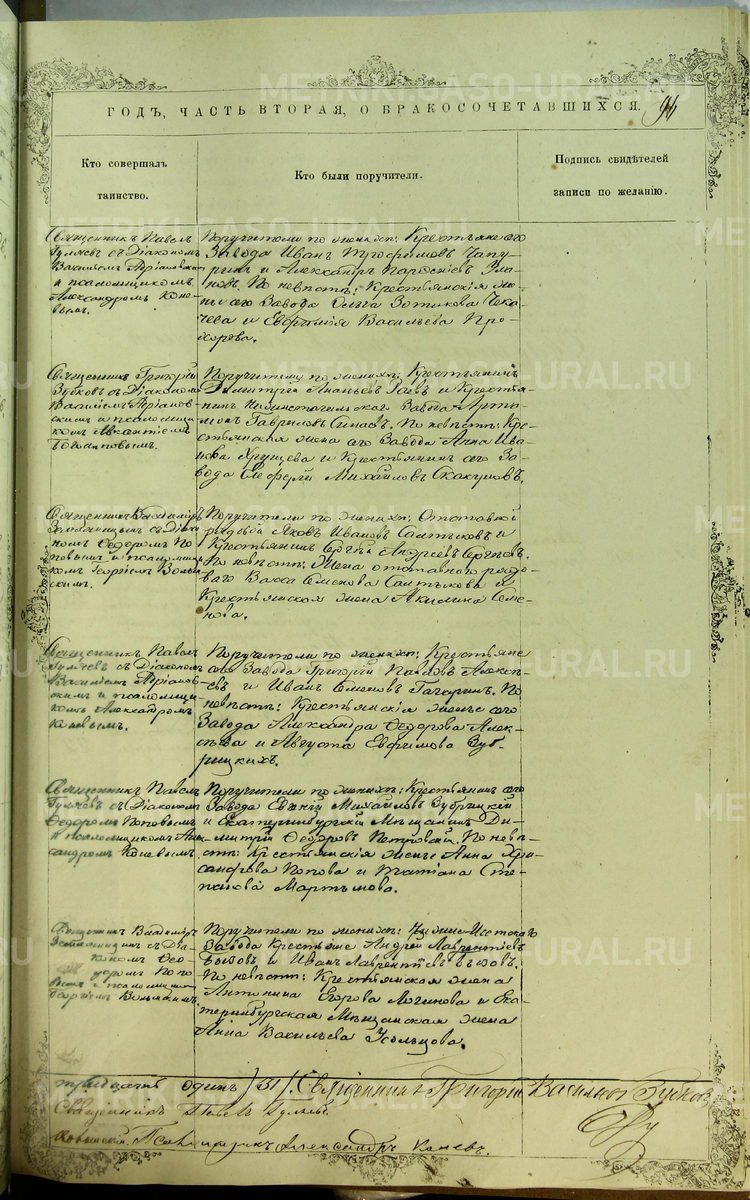 ГОДЪ, ЧАСТЬ ВТОРАЯ, О БРАКОСОЧЕТАВШИХСЯ.
Кто совершалъ
таинство.
Кто были поручители.
Подпись свидѣтелей
записи по желанію.
Священникъ Павелъ
съ Діакономъ
Василіемъ
и псаломщикомъ
Александромъ Коне-
вымъ.
Поручители по женихѣ: Крестьяне сего
Завода Иванъ Трофимовъ
и Александръ
По невѣстѣ: Крестьянскія же-
ны сего Завода Ольга Зотикова
и Евфимія Васильева Про-
хорова.
Священникъ Григорій
съ Діакономъ
Василіемъ Аріанов-
скимъ и псаломщи-
комъ
Поручители по женихѣ: Крестьянинъ
Димитрій Ананьевъ и Крестья-
нинъ Нижнетагильскаго Завода Арта-
монъ Гавриловъ По невѣстѣ: Кре-
стьянская жена сего Завода Анна Ива-
нова Хрущева и Крестьянинъ сего За-
вода Михайловъ Скакуновъ.
Священникъ Владиміръ
съ Діако-
номъ Ѳедоромъ По-
повымъ и псаломщи-
комъ Георгіемъ
Поручители по женихѣ: Отставной
рядовой Яковъ Ивановъ Салтыковъ и
Крестьянинъ Сергѣй Андреевъ Сергѣевъ.
По невѣстѣ: Жена отставнаго рядо-
ваго Васса Семенова Салтыкова и
Крестьянская жена Акилина Семе-
нова.
Священникъ Павелъ
съ Діакономъ
Василіемъ Аріанов-
скимъ и псаломщи-
комъ Александромъ
Коневымъ.
Поручители по женихѣ: Крестьяне
сего Завода Григорій Павловъ Алексѣ-
евъ и Иванъ Семеновъ Гагаринъ. По
невѣстѣ: Крестьянскія жены сего
Завода Александра Ѳедорова Алек-
сѣева и Августа Евфимова Зуб-
рицкихъ.
Священникъ Павелъ
съ Діакономъ
Ѳедоромъ Поповымъ
и псаломщикомъ Алек-
сандромъ Коневымъ.
Поручители по женихѣ: Крестьянинъ сего
Завода Михайловъ Зубрицкій
и Екатеринбургскій Мѣщанинъ Ди-
митрій Ѳедоровъ Петровскій. По невѣ-
стѣ: Крестьянскія жены Анна Хри-
санфова Попова и Татіана Сте-
панова Мартьянова.
Священникъ Владиміръ
съ Діа-
кономъ Ѳео-
доромъ Попо-
вымъ и псаломщикомъ
Георгіемъ
Поручители по женихѣ: Нижне-Исетскаго
Завода Крестьяне Андрей Лаврентіевъ
Бызовъ и Иванъ Лаврентіевъ Бызовъ.
По невѣстѣ: Крестьянская жена
Антонина Егорова Логинова и Ека-
теринбургская Мѣщанская жена
Анна Васильева Усольцова.
тридцать одинъ /31/ Священникъ Григорій Васильевъ
Священникъ Павелъ
Псаломщикъ Александръ Коневъ.
METRIKI.GASO-URAL.RU